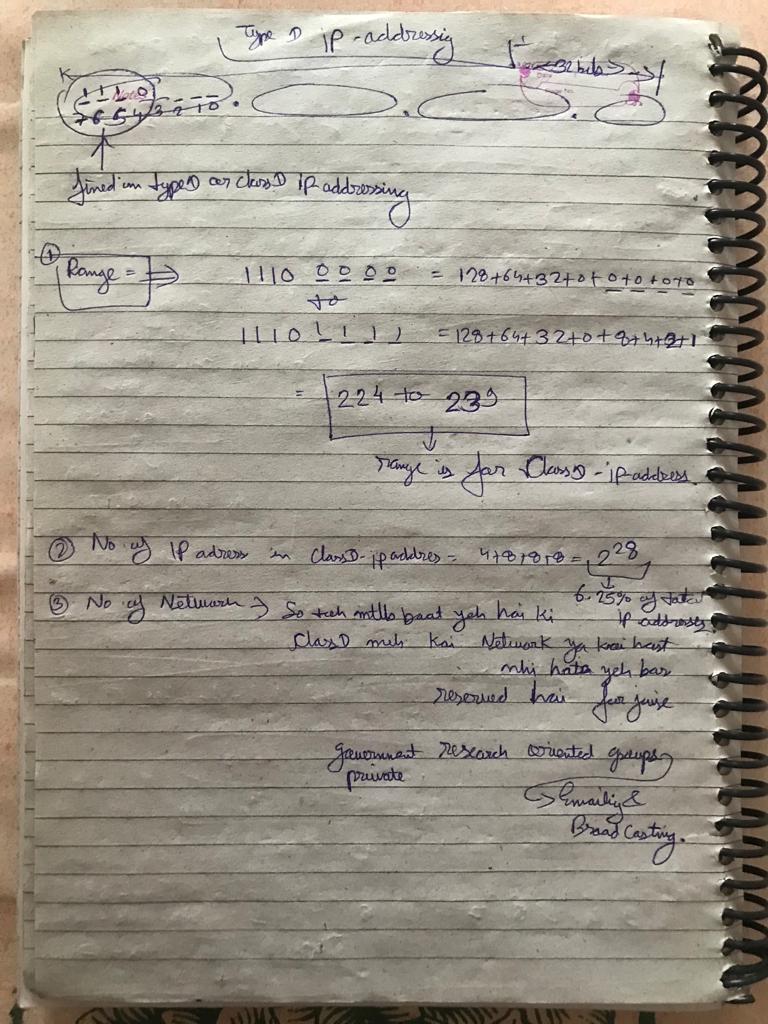 Type D IP-addressig
32 bits
1 1 1 0
7 6 5 4 3 2 1 0
fined in type D or class D ip addressing
① Range = ⇒ 1110 0 0 0 0 = 128+64+32+0+0+0+0+0
to
1110 1 1 1 1 = 128+64+32+0+8+4+2+1
= 224 to 239
range is for Class D-ip-address.
② No of IP adress in class D-ip addres = 4+8+8+8 = 2^28
6.25% of total IP addresses
③ No of Network → So mtlb baat yeh hai ki
Class D meh koi Network ya koi host
nhi hota yeh bas
reserved hai for jaise
government research oriented groups
private
→ Emailig &
Broad Casting.